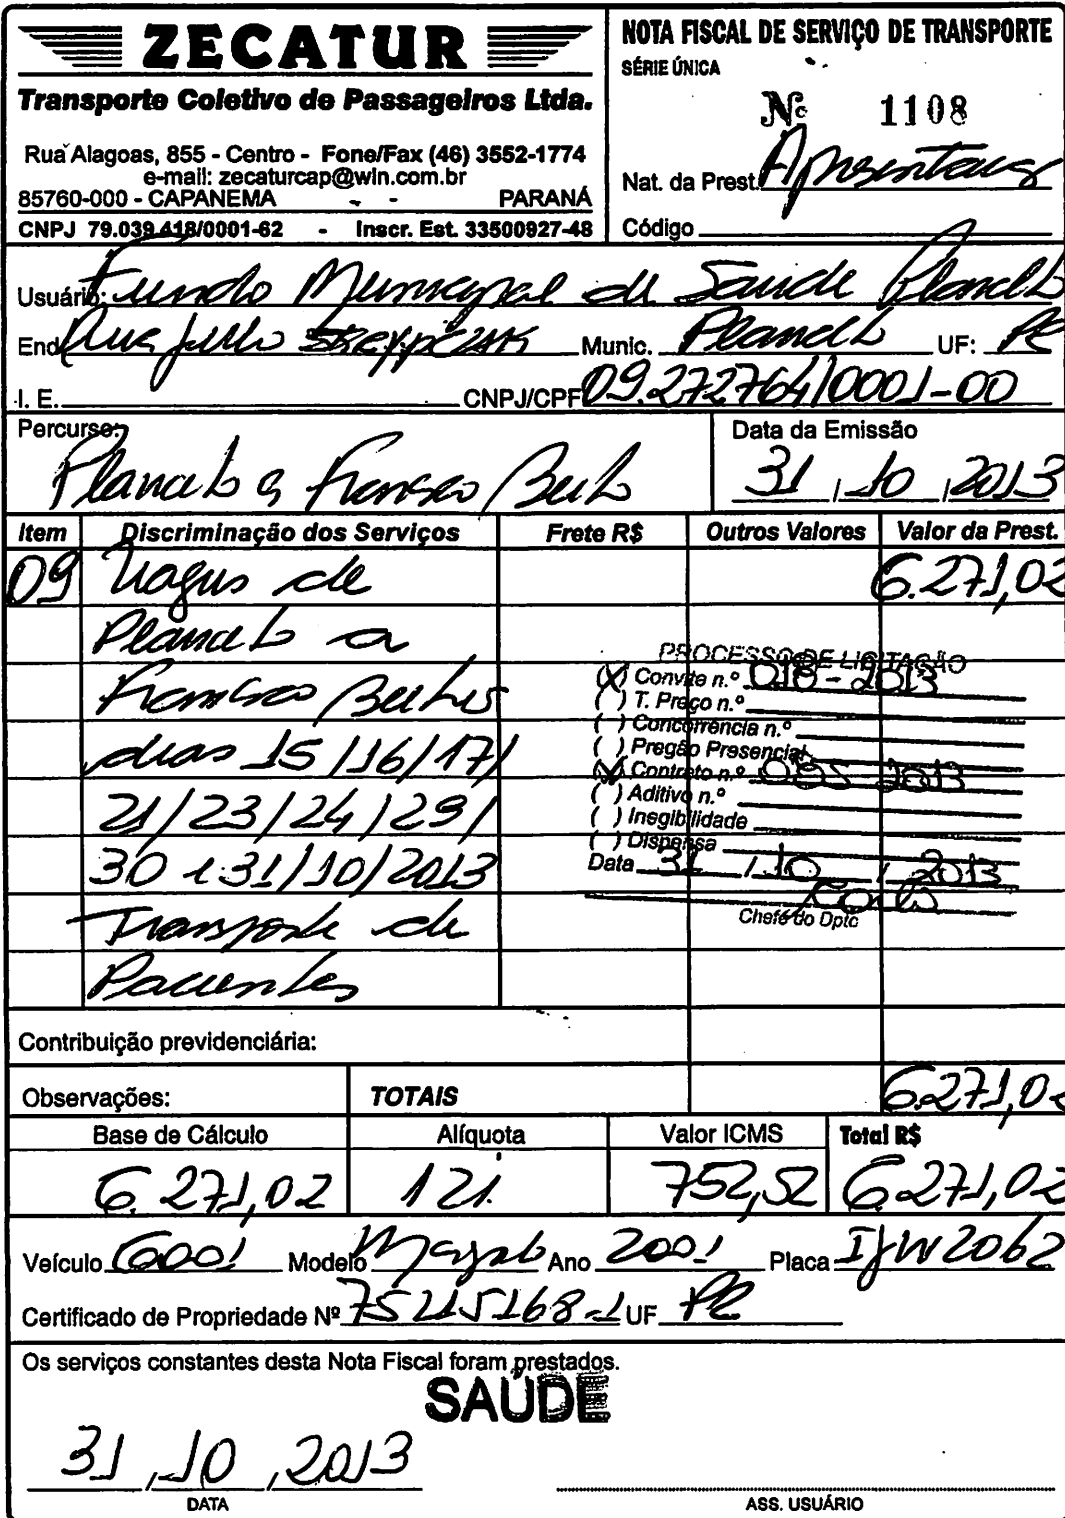 ZECATUR
Transporte Coletivo de Passageiros Ltda.
Rua Alagoas, 855 - Centro - Fone/Fax (46) 3552-1774
e-mail: zecaturcap@wln.com.br
85760-000 - CAPANEMA - - PARANÁ
CNPJ 79.039.418/0001-62 - Inscr. Est. 33500927-48
NOTA FISCAL DE SERVIÇO DE TRANSPORTE
SÉRIE ÚNICA
Nº 1108
Nat. da Prest.
Código
Usuário: Fundo Municipal de Saude Planalto
End. Rua Julio Munic. Planalto UF: PR
I. E. CNPJ/CPF 09.272764/0001-00
Percurso:
Planalto a Francisco Belt
Data da Emissão
31, 10, 2013
Item Discriminação dos Serviços Frete R$ Outros Valores Valor da Prest.
09 Viagens de 6.271,02
Planalto a
Francisco Beltrão
dias 15/16/17/
21/23/24/29/
30 e 31/10/2013
Transporte de
Pacientes
PROCESSO DE LICITAÇÃO
(X) Convite n.º 018-2013
( ) T. Preço n.º
( ) Concorrência n.º
( ) Pregão Presencial
(X) Contrato n.º 2013
( ) Aditivo n.º
( ) Inegibilidade
( ) Dispensa
Data 31, 10, 2013
Chefe do Dptc
Contribuição previdenciária:
Observações: TOTAIS 6.271,02
Base de Cálculo Alíquota Valor ICMS Total R$
6.271,02 12%. 752,52 6.271,02
Veículo 6001 Modelo Ano 2001 Placa IJW2062
Certificado de Propriedade Nº 75215168-1 UF PR
Os serviços constantes desta Nota Fiscal foram prestados.
SAÚDE
31, 10, 2013
DATA ASS. USUÁRIO